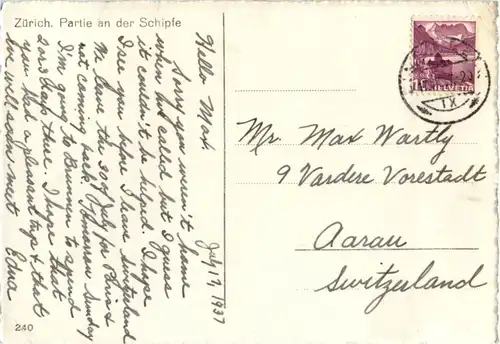 Zürich. Partie an der Schipfe
July 17, 1937
Hello Max
Sorry you weren't home
when we called but I guess
it couldn't be helped. I hope
I see you before I leave Switzerland
We leave the 30 of July for Paris &
not coming back. Tomorrow Sunday
I'm going to Brunnen to spend
2 or 3 days there. I hope that
you had a pleasant trip & that
we will soon meet
Edna
240
HELVETIA
15
IX
Mr. Max Wartly
9 Vardere Vorestadt
Aarau
Switzerland